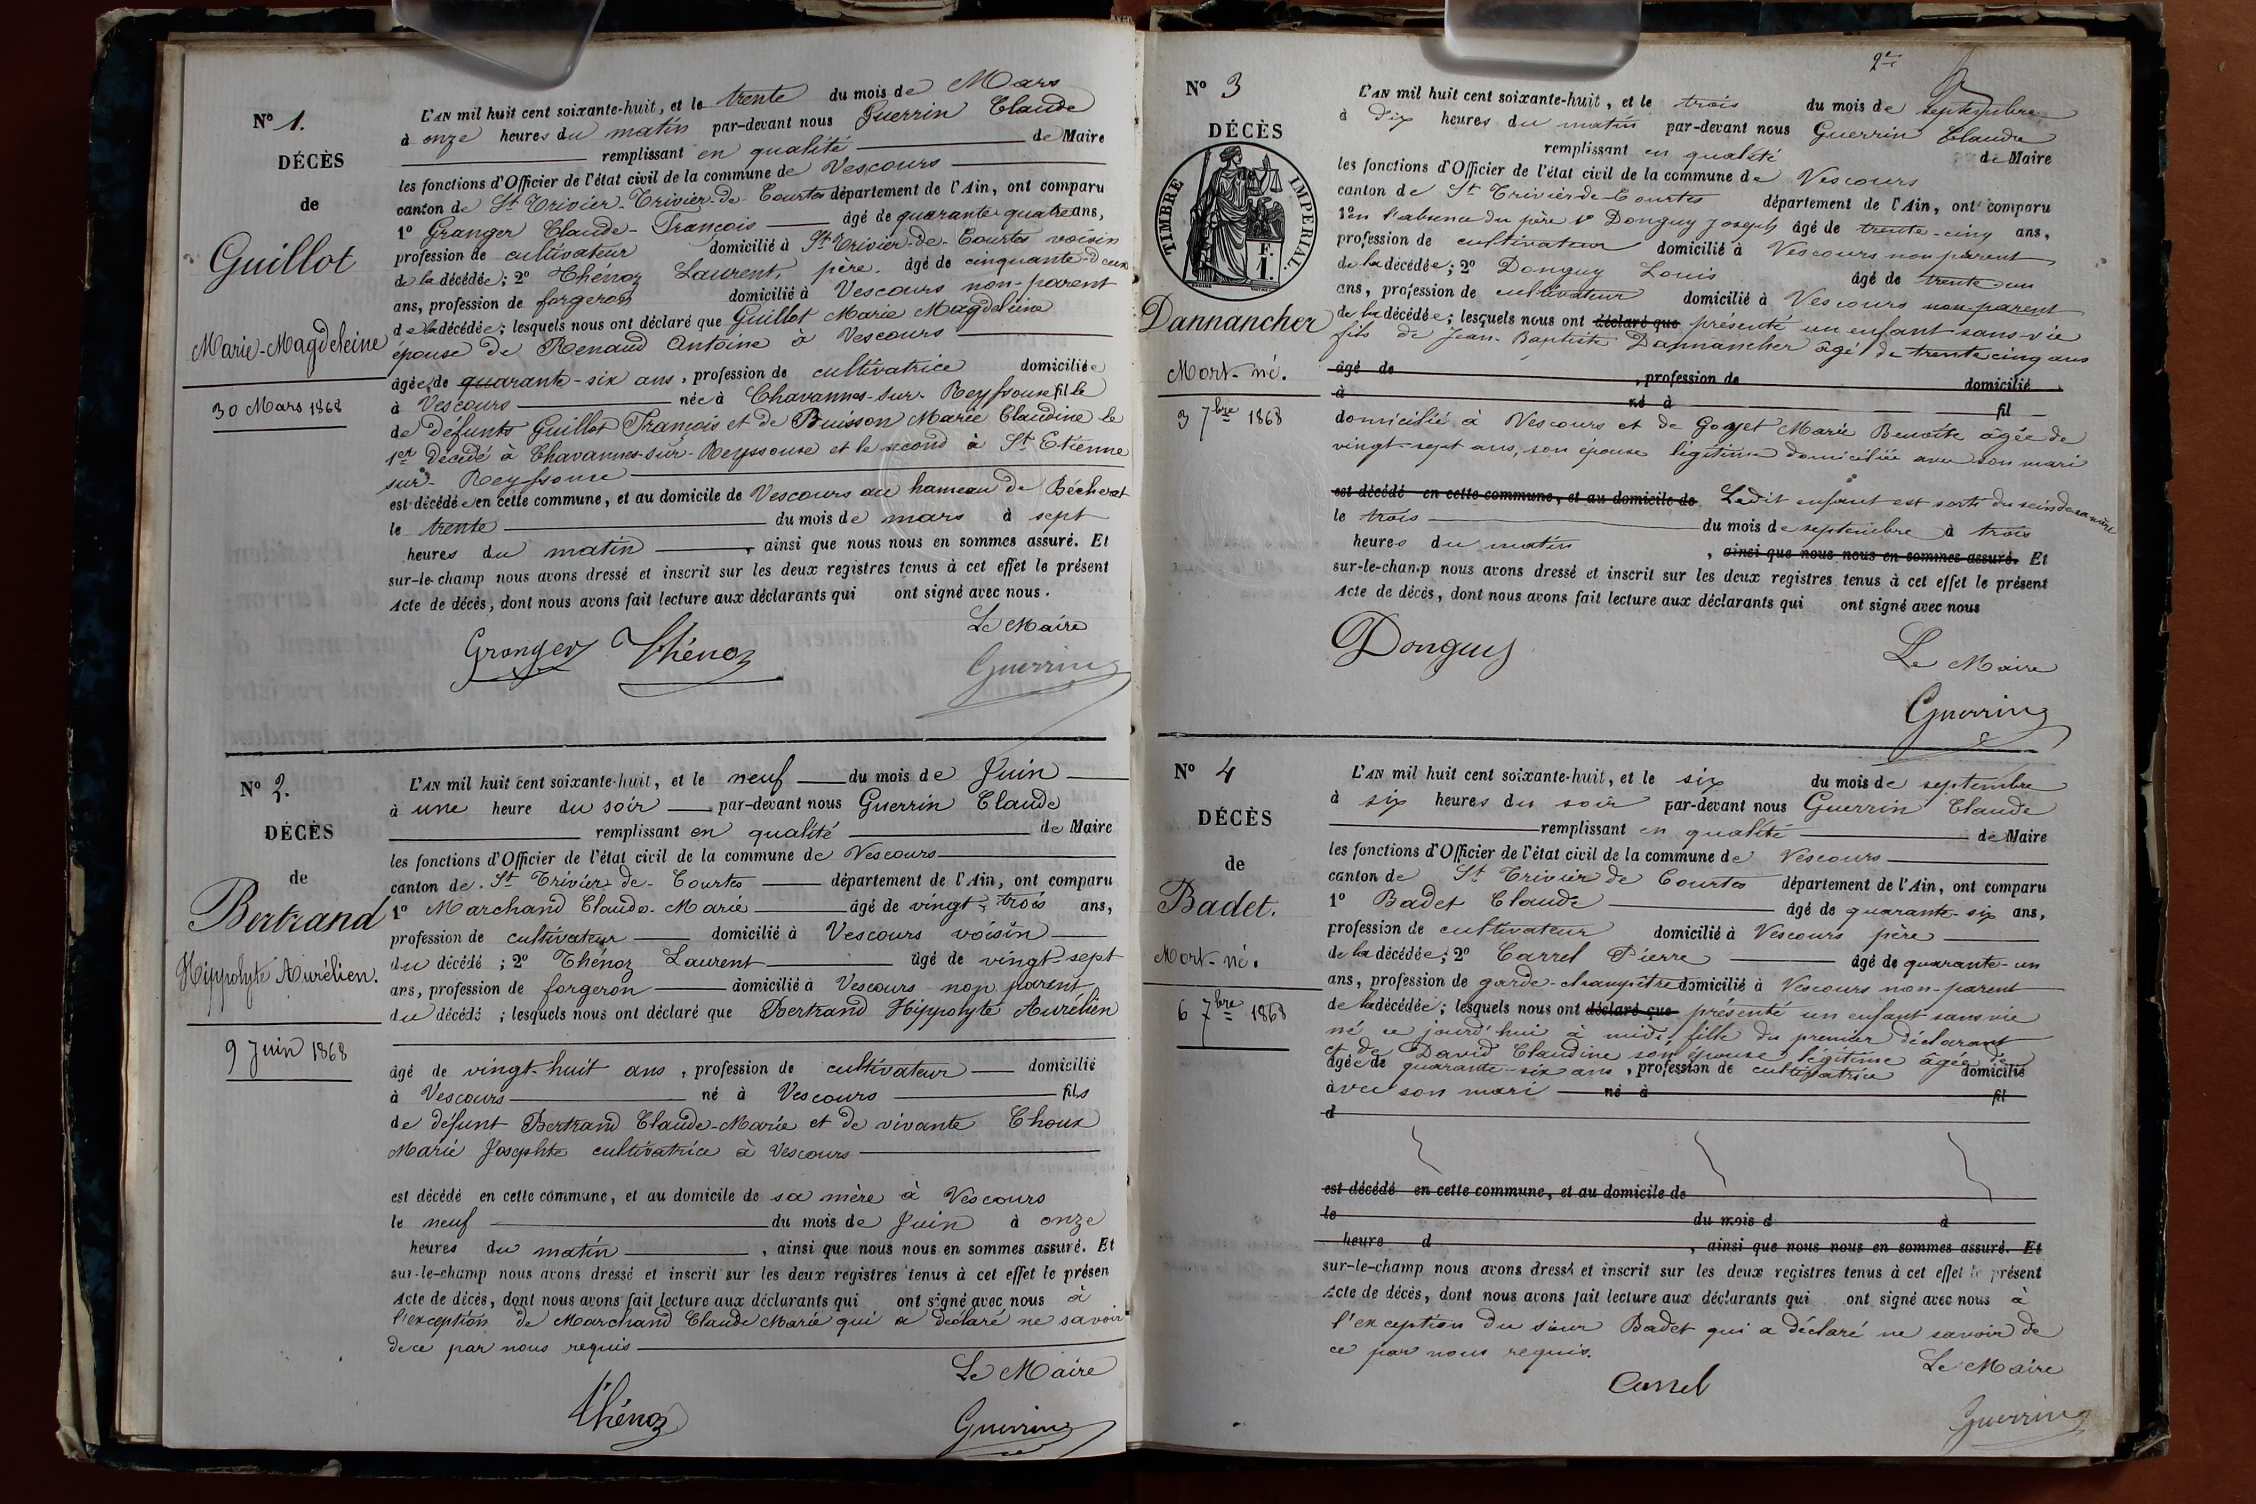 N° 1.
DÉCÈS
de
Guillot
Marie-Magdeleine
30 Mars 1868
L'AN mil huit cent soixante-huit, et le trente du mois de Mars
à onze heures du matin par-devant nous Guerrin Claude
remplissant en qualité de Maire
les fonctions d'Officier de l'état civil de la commune de Vescours
canton de St Trivier-Trivier-de-Courtes département de l'Ain, ont comparu
1° Granger Claude-François âgé de quarante quatre ans,
profession de cultivateur domicilié à St Trivier-de-Courtes voisin
de la décédée; 2° Thénoz Laurent, père. âgé de cinquante-deux
ans, profession de forgeron domicilié à Vescours non-parent
de la décédée; lesquels nous ont déclaré que Guillot Marie Magdeleine
épouse de Renaud Antoine à Vescours
âgée de quarante-six ans, profession de cultivatrice domiciliée
à Vescours née à Chavannes-sur-Reyssouse fille
de défunts Guillot François et de Buisson Marie Claudine le
1er décédé à Chavannes-sur-Reyssouse et le second à St Etienne
sur-Reyssouse
est décédée en cette commune, et au domicile de Vescours au hameau de Bécherat
le trente du mois de mars à sept
heures du matin, ainsi que nous nous en sommes assuré. Et
sur-le-champ nous avons dressé et inscrit sur les deux registres tenus à cet effet le présent
Acte de décès, dont nous avons fait lecture aux déclarants qui ont signé avec nous.
Le Maire
Granger Thénoz Guerrin
N° 2.
DÉCÈS
de
Bertrand
Hippolyte Aurélien.
9 Juin 1868
L'AN mil huit cent soixante-huit, et le neuf du mois de Juin
à une heure du soir par-devant nous Guerrin Claude
remplissant en qualité de Maire
les fonctions d'Officier de l'état civil de la commune de Vescours
canton de St Trivier-de-Courtes département de l'Ain, ont comparu
1° Marchand Claude-Marie âgé de vingt-trois ans,
profession de cultivateur domicilié à Vescours voisin
du décédé; 2° Thénoz Laurent âgé de vingt-sept
ans, profession de forgeron domicilié à Vescours non parent
du décédé; lesquels nous ont déclaré que Bertrand Hippolyte Aurélien
âgé de vingt-huit ans, profession de cultivateur domicilié
à Vescours né à Vescours fils
de défunt Bertrand Claude-Marie et de vivante Choux
Marie Josephte cultivatrice à Vescours
est décédé en cette commune, et au domicile de sa mère à Vescours
le neuf du mois de Juin à onze
heures du matin, ainsi que nous nous en sommes assuré. Et
sur-le-champ nous avons dressé et inscrit sur les deux registres tenus à cet effet le présen
Acte de décès, dont nous avons fait lecture aux déclarants qui ont signé avec nous à
l'exception de Marchand Claude Marie qui a déclaré ne savoir
de ce par nous requis
Le Maire
Thénoz Guerrin
2e
N° 3
DÉCÈS
TIMBRE IMPERIAL.
F.
1.
Dannancher
Mort-né.
3 7bre 1868
L'AN mil huit cent soixante-huit, et le trois du mois de septembre
à dix heures du matin par-devant nous Guerrin Claude
remplissant en qualité de Maire
les fonctions d'Officier de l'état civil de la commune de Vescours
canton de St Trivier-de-Courtes département de l'Ain, ont comparu
1° en l'absence du père 1° Donguy Joseph âgé de trente-cinq ans,
profession de cultivateur domicilié à Vescours non parent
de la décédée; 2° Donguy Louis âgé de trente un
ans, profession de cultivateur domicilié à Vescours non-parent
de la décédée; lesquels nous ont déclaré que présenté un enfant sans-vie
fils de Jean-Baptiste Dannancher âgé de trente cinq ans
âgé de , profession de domicilié
à né à fil
domicilié à Vescours et de Goyet Marie Benoîte âgée de
vingt-sept ans, son épouse légitime domiciliée avec son mari
est décédé en cette commune, et au domicile de Ledit enfant est sorti du sein de sa mère
le trois du mois de septembre à trois
heures du matin, ainsi que nous nous en sommes assuré. Et
sur-le-champ nous avons dressé et inscrit sur les deux registres tenus à cet effet le présent
Acte de décès, dont nous avons fait lecture aux déclarants qui ont signé avec nous
Donguy Le Maire
Guerrin
N° 4
DÉCÈS
de
Badet.
Mort-né.
6 7bre 1868
L'AN mil huit cent soixante-huit, et le six du mois de septembre
à six heures du soir par-devant nous Guerrin Claude
remplissant en qualité de Maire
les fonctions d'Officier de l'état civil de la commune de Vescours
canton de St Trivier de Courtes département de l'Ain, ont comparu
1° Badet Claude âgé de quarante-six ans,
profession de cultivateur domicilié à Vescours père
de la décédée; 2° Carrel Pierre âgé de quarante-un
ans, profession de garde-champêtre domicilié à Vescours non-parent
de la décédée; lesquels nous ont déclaré que présenté un enfant sans vie
né ce jourd'hui à midi, fille du premier déclarant
et de David Claudine son épouse légitime âgée de
âgée de quarante-six ans, profession de cultivatrice domicilié
avec son mari né à fil
d
est décédé en cette commune, et au domicile de
le du mois d à
heure d , ainsi que nous nous en sommes assuré. Et
sur-le-champ nous avons dressé et inscrit sur les deux registres tenus à cet effet le présent
Acte de décès, dont nous avons fait lecture aux déclarants qui ont signé avec nous à
l'exception du sieur Badet qui a déclaré ne savoir de
ce par nous requis.
Le Maire
Carrel Guerrin